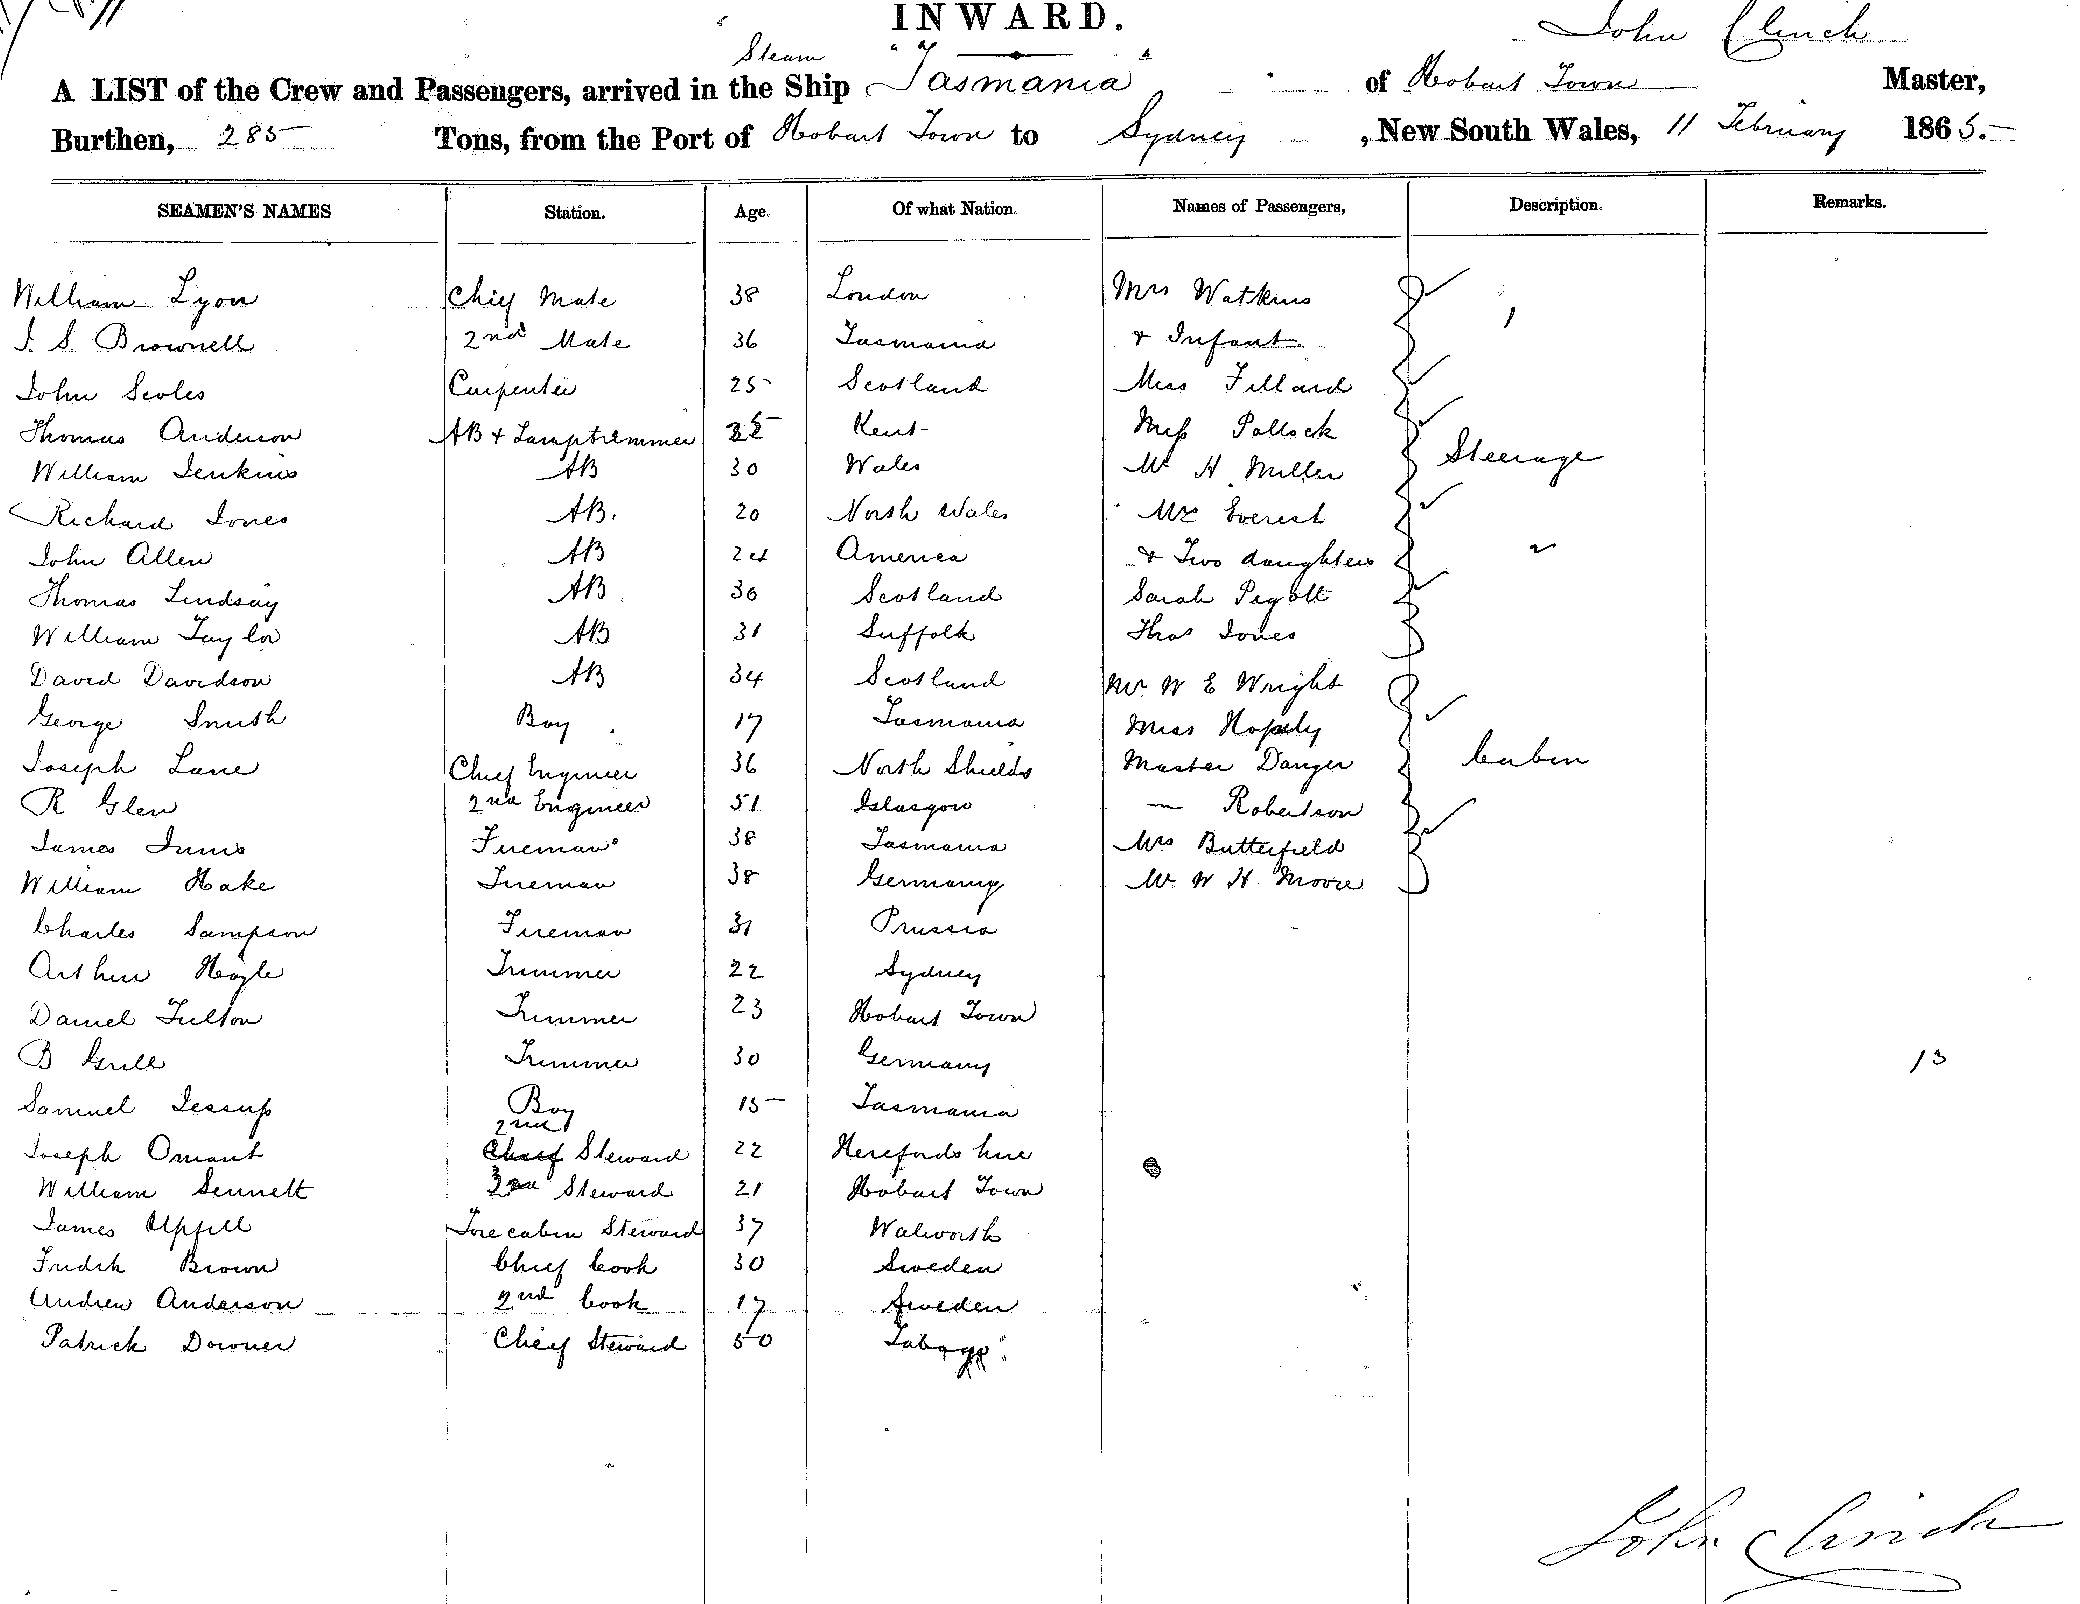 INWARD.
John Clinch
Steam
A LIST of the Crew and Passengers, arrived in the Ship "Tasmania" of Hobart Town Master,
Burthen, 285 Tons, from the Port of Hobart Town to Sydney, New South Wales, 11 February 1865.
SEAMEN'S NAMES Station. Age. Of what Nation. Names of Passengers, Description. Remarks.
William Lyon Chief Mate 38 London Mrs Watkins
J. S. Brownell 2nd Mate 36 Tasmania & Infant
John Scoles Carpenter 25 Scotland Miss Fillard
Thomas Anderson AB & Lamptrimmer Kent Miss Pollock
William Jenkins AB 30 Wales Mr H Miller Steerage
Richard Jones AB. 20 North Wales Mr Everest
John Allen AB 24 America & Two daughters
Thomas Lindsay AB 30 Scotland Sarah Pigott
William Taylor AB 31 Suffolk Thos Jones
David Davidson AB 34 Scotland Mr W E Wright
George Smith Boy 17 Tasmania Miss
Joseph Lane Chief Engineer 36 North Shields Master Danger Cabin
R Glen 2nd Engineer 51 Glasgow — Robertson
James Innis Fireman 38 Tasmania Mrs Butterfield
William Hake Fireman 38 Germany Mr W H Moore
Charles Sampson Fireman 31 Prussia
Arthur Hoyle Trimmer 22 Sydney
Daniel Fulton Trimmer 23 Hobart Town
B Grill Trimmer 30 Germany 13
Samuel Jessup Boy 15 Tasmania
2nd
Joseph Omant Chief Steward 22 Herefordshire
William Sennett Steward 21 Hobart Town
James Upfill Forecabin Steward 37 Walworth
Fredk Brown Chief Cook 30 Sweden
Andrew Anderson 2nd Cook 17 Sweden
Patrick Downer Chief Steward 50
John Clinch